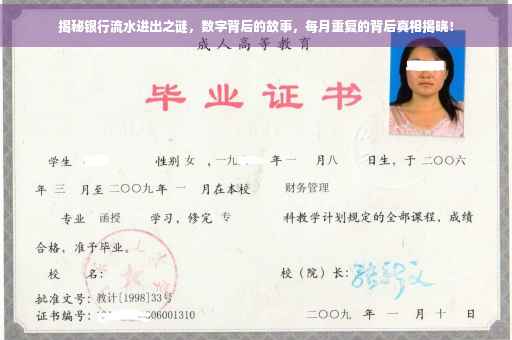 揭秘银行流水进出之谜，数字背后的故事，每月重复的背后真相揭晓！
成人高等教育
毕业证书
学生 性别 女 ，一九 年 一 月 八 日生，于 二〇〇六
年 三 月至 二〇〇九 年 一 月在本校 财务管理
专业 函授 学习，修完 专 科教学计划规定的全部课程，成绩
合格，准予毕业。
校 名： 校（院）长：
批准文号：教计[1998]33号
证书编号： 606001310 二〇〇九 年 一 月 十 日